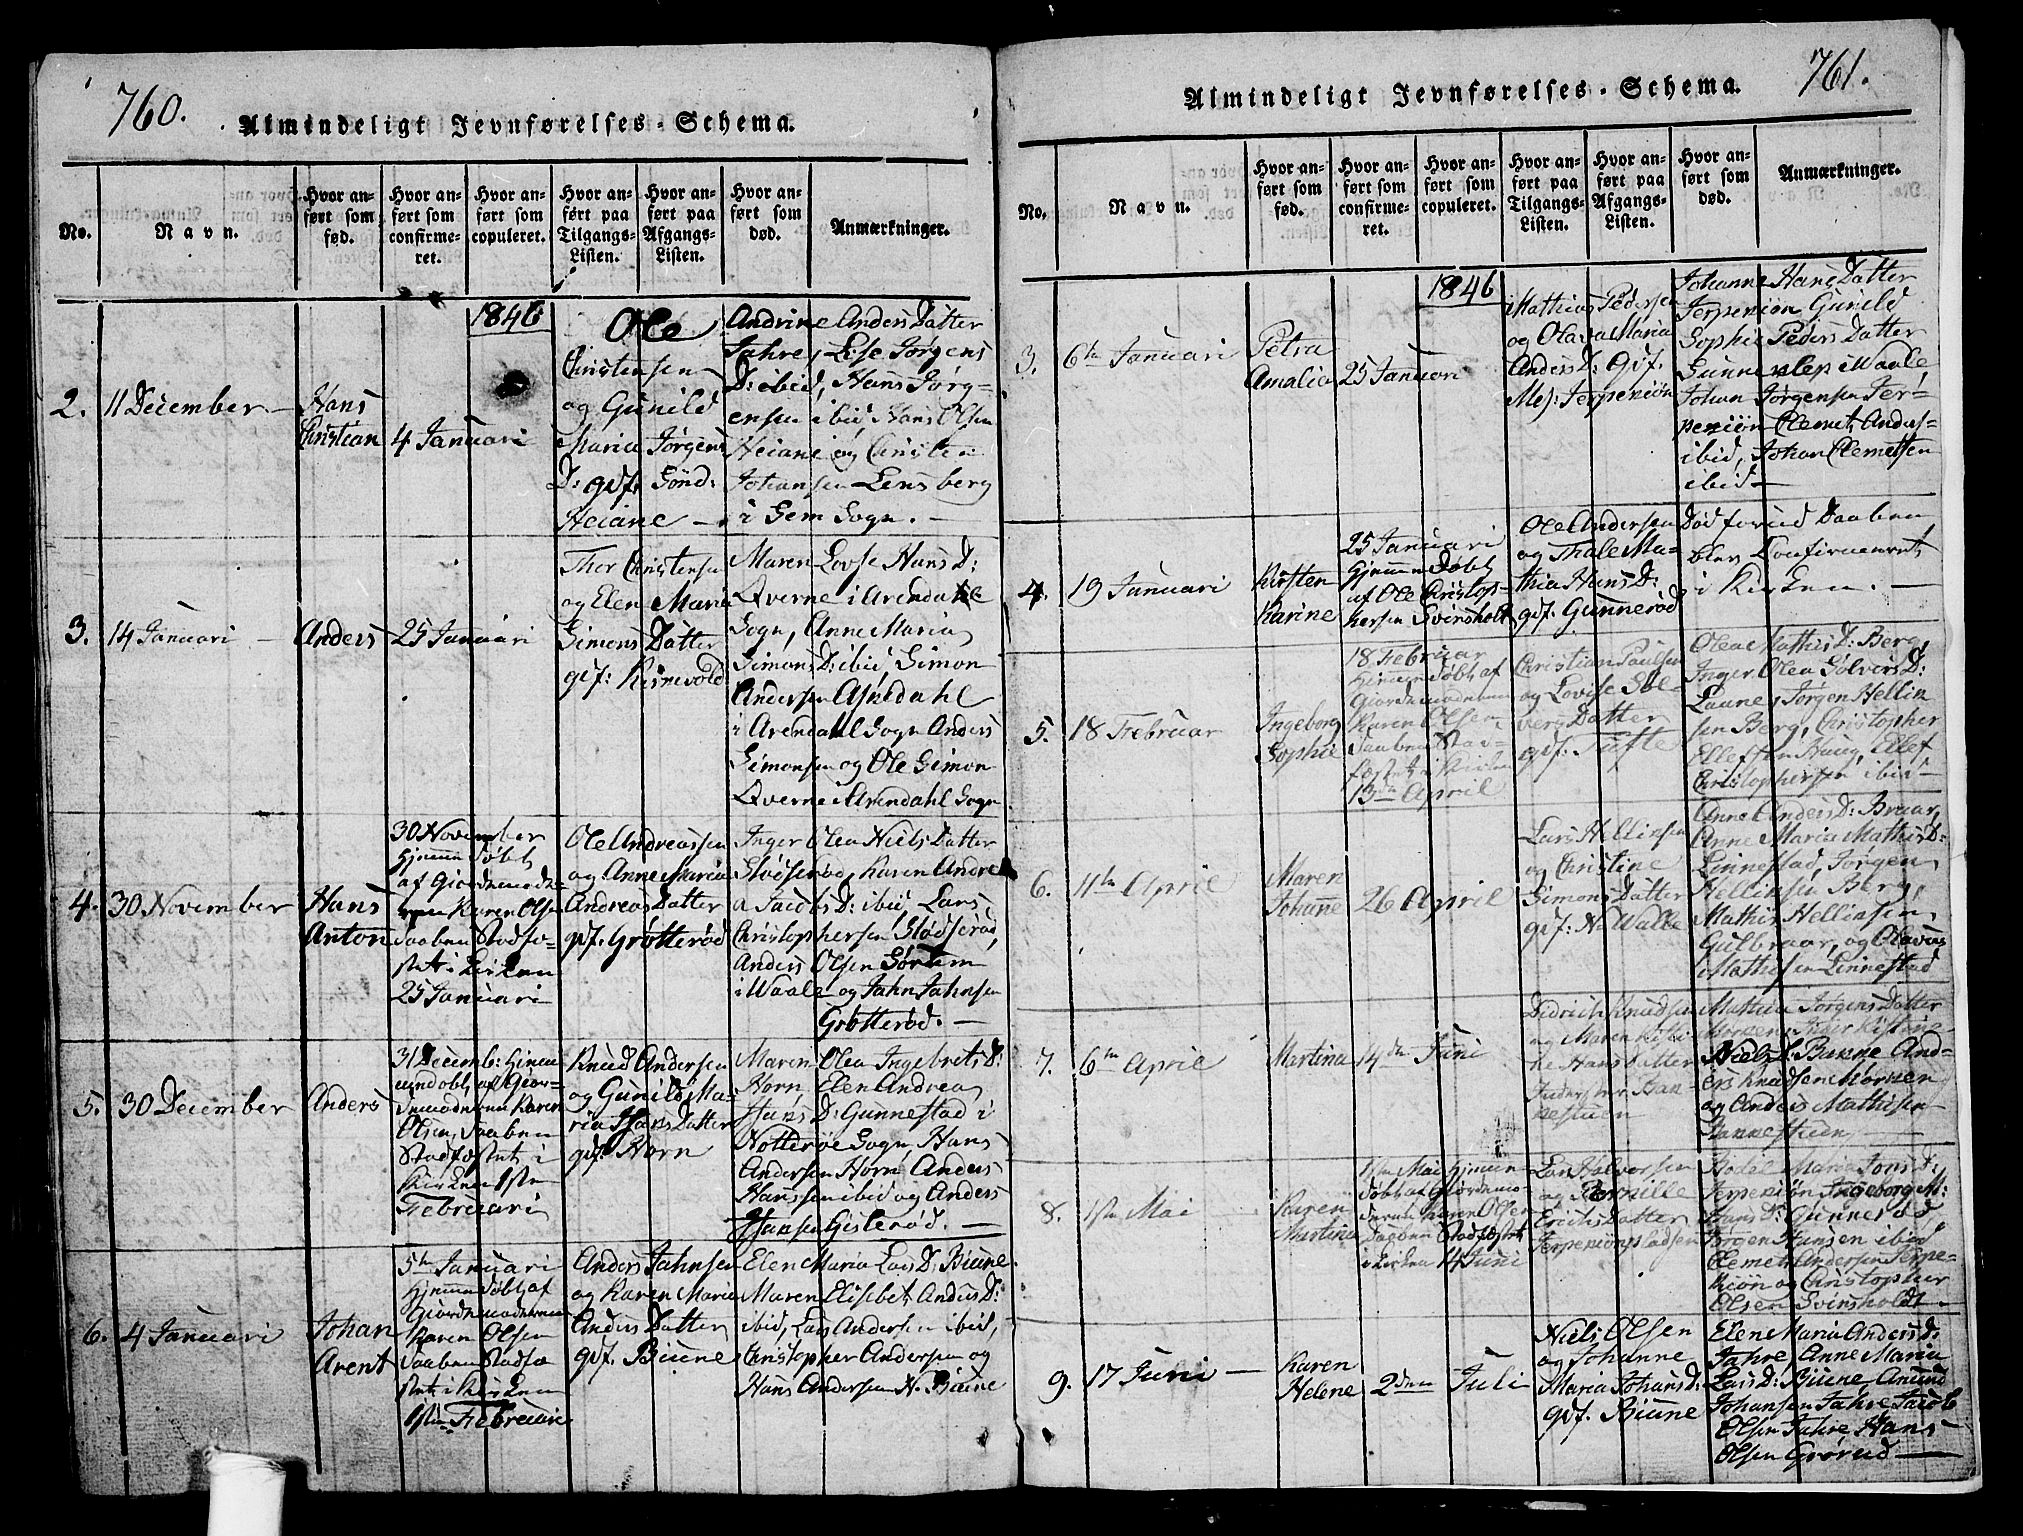 760.
Almindeligt Jevnførelses-Schema.
No.
Navn.
Hvor anført som fød.
Hvor anført som confirmeret.
Hvor anført som copuleret.
Hvor anført paa Tilgangs-Listen.
Hvor anført paa Afgangs-Listen.
Hvor anført som død.
Anmærkninger.
1846
2. 11 December
Hans
Christian
4 Januari
Ole
Christensen
og Gunild
Maria Jørgens
D: gdf. Sønd:
Heiane
Andrine Anders Datter
Jahre, Lise Jørgens
D: ibid, Hans Jørg-
ensen ibid, Hans Olsen
Heiane og Christen
Johansen Lensberg
i Sem Sogn.
3. 14 Januari
Anders
25 Januari
Thor Christensen
og Elen Maria
Simons Datter
gdf:
Maren Lovise Hans D:
Qverne i Arendahl
Sogn, Anne Maria
Simons D: ibid, Simon
Andersen Askedahl
i Arendahl Sogn Anders
Simonsen og Ole Simon
Qverne i Arendahl Sogn
4. 30 November
Hans
Anton
30 November
hjemme døbt
af Giordemoder
Karen Olsen
Daaben Stadfæ-
stet i Kirken
25 Januari
Ole Andreassen
og Anne Maria
Andreas Datter
gdf. Grøtterød
Inger Olea Niels Datter
Slødserød, Karen Andre
a Jacobs D: ibid, Lars
Christophersen Slødserød,
Anders Olsen Sørum
i Waale og Jahn Jahnsen
Grøtterød.
5. 30 December
Anders
31 Decemb: hjem
mendøbt af Gior-
demoderen Karen
Olsen, Daaben
Stadfæstet i
Kirken 1sten
Februari
Knud Andersen
og Gunild Ma-
ria Hans Datter
gdf. Horn
Maren Olea Ingebrets D:
Horn, Elen Andrea
Hans D: Gunnestad i
Nøtterøe Sogn, Hans
Andersen Horn, Anders
Hanssen ibid og Anders
Hansen Gislerød.
6. 4 Januari
Johan
Arent
5te Januari
hjemme døbt af
Giordemoderen
Karen Olsen
Daaben Stadfæ
stet i Kirken
1sten Februari
Anders Jahnsen
og Karen Marie
Anders Datter
gdf. Biune
Elen Maria Lars D: Biune
Maren Elisebet Anders D:
ibid, Lars Andersen ibid,
Christopher Andersen og
Hans Andersen N. Biune
761.
Almindeligt Jevnførelses-Schema.
No.
Navn.
Hvor anført som fød.
Hvor anført som confirmeret.
Hvor anført som copuleret.
Hvor anført paa Tilgangs-Listen.
Hvor anført paa Afgangs-Listen.
Hvor anført som død.
Anmærkninger.
1846
3. 6te Januari
Petra
Amalia
25 Januari
Mathias Pedersen
og Olava Maria
Anders D: gdf.
Mej: Jerpekiøn
Johanne Hans Datter
Jerpekiøn Gunild
Sophie Peders Datter
i Waale
Johan Jørgensen Jer-
pekiøn Clemet Anders-
ibid, Johan Clemetsen
ibid
4. 19 Januari
Kirsten
Karine
25 Januari
hjemme døbt
af Ole Christop-
hersen Svinsholt
Ole Andersen
og Thale Ma-
thia Hans D:
gdf. Gunnerød
Død forud Daaben
blev Confirmeret
i Kirken.
5. 18 Februar
Ingeborg
Sophie
18 Februar
hjemme døbt af
Giordemoderen
Karen Olsen
Daaben Stad-
fæstet i Kirken
13de April
Christian Paulsen
og Lovise Søl-
vers Datter
gdf. Tufte
Olea Mathis D: Berg,
Inger Olea Sølvers D:
Jørgen Hellik
sen Berg, Christopher
Ellefsen Haug, Ellef
Christophersen ibid
6. 11te April
Maren
Johanne
26 April
Lars Helliksen
og Christine
Simons Datter
gdf: N. Walle
Anne Anders D: Bruar,
Anne Maria Mathis D:
Linnestad, Jørgen
Helliksen Berg,
Mathis Helliksen,
Gulbraar, og Olavus
Mathisen Linnestad
7. 6te April
Martina
14de Juni
Didrich Knudsen
og Maren Kirsti-
ne Hans Datter
Mathia Jørgens Datter
Niels D: Bakke And-
ers Knudsen Mørken
og Anders Mathisen
8. 1ste Mai
Karen
Martina
1ste Mai hjemme
døbt af Giordemo-
deren Karen Olsen
Daaben Stadfæstet
i Kirken 14 Juni
Lars Halvorsen
og Pernille
Erichs Datter
Jerpekiøns
Bodel Maria Jons D:
Jerpekiøn, Ingeborg M:
Hans D: Gunnerød,
Jørgen Hansen ibid
Clemet Andersen Jerpe-
kiøn og Christopher
Olsen Svinsholdt
9. 17 Juni
Karen
Helene
2den Juli
Niels Olsen
og Johanne
Maria Johans D:
gdf. Biune
Elen Maria Anders D:
Jahre, Anne Maria
Lars D: Biune, Amund
Johansen Jahre Jacob
Olsen Jahre Hans
Olsen Grørud